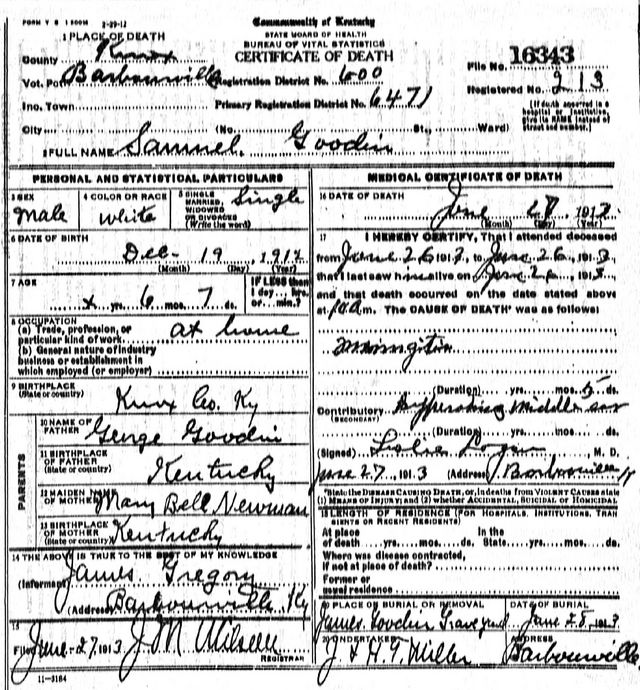 FORM V S 1 500M 2-29-12
Commonwealth of Kentucky
STATE BOARD OF HEALTH
BUREAU OF VITAL STATISTICS
CERTIFICATE OF DEATH
1 PLACE OF DEATH
County Knox
Vot. Pct. Barbourville Registration District No. 600
File No. 16343
Registered No. 213
Inc. Town Primary Registration District No. 6471
City (No. St., Ward)
(If death occurred in a hospital or institution, give its NAME instead of street and number.)
2 FULL NAME Samuel Goodin
PERSONAL AND STATISTICAL PARTICULARS
3 SEX Male
4 COLOR OR RACE White
5 SINGLE, MARRIED, WIDOWED OR DIVORCED (Write the word) Single
6 DATE OF BIRTH
Dec- 19, 1912
(Month) (Day) (Year)
7 AGE
yrs. 6 mos. 7 ds.
IF LESS than 1 day... hrs. or... min.?
8 OCCUPATION
(a) Trade, profession, or particular kind of work at home
(b) General nature of industry business or establishment in which employed (or employer)
9 BIRTHPLACE
(State or country) Knox Co. Ky
PARENTS
10 NAME OF FATHER George Goodin
11 BIRTHPLACE OF FATHER (State or country) Kentucky
12 MAIDEN NAME OF MOTHER Mary Bell Newman
13 BIRTHPLACE OF MOTHER (State or country) Kentucky
14 THE ABOVE IS TRUE TO THE BEST OF MY KNOWLEDGE
(Informant) James Gregory
(Address) Barbourville, Ky
15
Filed June-27, 1913 J M Wilson
REGISTRAR
11-3184
MEDICAL CERTIFICATE OF DEATH
16 DATE OF DEATH
June 1913
(Month) (Day) (Year)
17 I HEREBY CERTIFY, That I attended deceased
from June 26 1913, to June 26, 1913
that I last saw him alive on June 26, 1913
and that death occurred on the date stated above
at m. The CAUSE OF DEATH* was as follows:
Meningitis
(Duration) yrs. mos. 5 ds.
Contributory (SECONDARY) middle ear
(Duration) yrs. mos. ds.
(Signed) Leslie Logan M. D.
June 27, 1913 (Address) Barbourville Ky
*State the DISEASE CAUSING DEATH, or, in deaths from VIOLENT CAUSES state (1) MEANS OF INJURY; and (2) whether ACCIDENTAL, SUICIDAL OR HOMICIDAL.
18 LENGTH OF RESIDENCE (FOR HOSPITALS, INSTITUTIONS, TRANSIENTS OR RECENT RESIDENTS)
At place of death yrs. mos. ds. In the State, yrs. mos. ds.
Where was disease contracted,
If not at place of death?
Former or usual residence
19 PLACE OF BURIAL OR REMOVAL
James Goodin Graveyard
DATE OF BURIAL
June 28, 1913
20 UNDERTAKER
J & H. T. Miller
ADDRESS
Barbourville